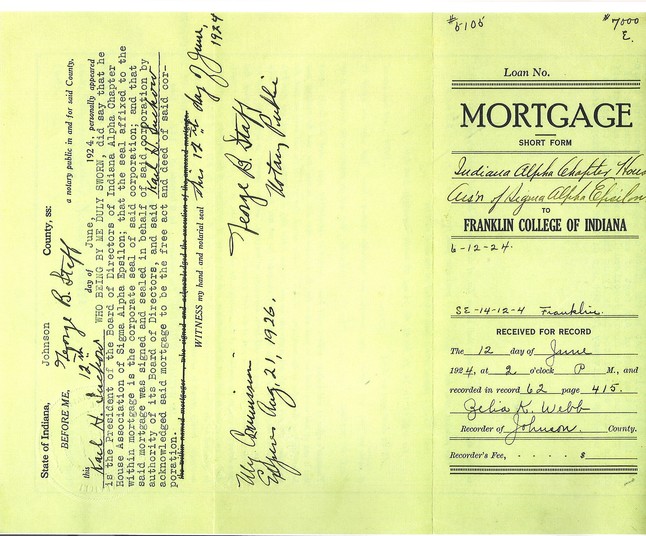 State of Indiana, Johnson County, ss:
BEFORE ME, George B. Staff a notary public in and for said County,
this 12th day of June, 1924, personally appeared
Karl H. Suckow WHO BEING BY ME DULY SWORN, did say that he
is the President of the Board of Directors of Indiana Alpha Chapter
House Association of Sigma Alpha Epsilon; that the seal affixed to the
within mortgage is the corporate seal of said corporation; and that
said mortgage was signed and sealed in behalf of said corporation by
authority of its Board of Directors, and said Karl H. Suckow
acknowledged said mortgage to be the free act and deed of said cor-
poration.
WITNESS my hand and notarial seal this 12th day of June,
1924
George B. Staff
Notary Public
My Commission
Expires Aug, 21, 1926.
#5105
#7000
E.
Loan No.
MORTGAGE
SHORT FORM
Indiana Alpha Chapter House
Ass'n of Sigma Alpha Epsilon
TO
FRANKLIN COLLEGE OF INDIANA
6-12-24.
SE-14-12-4 Franklin.
RECEIVED FOR RECORD
The 12 day of June
1924, at 2 o'clock P M., and
recorded in record 62 page 415.
Zelia K. Webb
Recorder of Johnson County.
Recorder's Fee, - - - - $